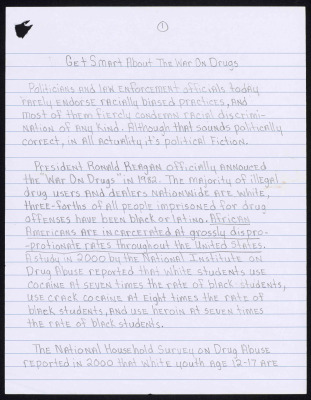 1
Get Smart About The War On Drugs
Politicians and law enforcement officials today
rarely endorse racially biased practices, and
most of them fiercly condemn racial discrimi-
nation of any kind. Although that sounds politically
correct, in all actuality it's political fiction.
President Ronald Reagan officially announced
the "War On Drugs" in 1982. The majority of illegal
drug users and dealers nationwide are white,
three-forths of all people imprisoned for drug
offenses have been black or latino. African
Americans are incarcerated at grossly dispro-
-protionate rates throughout the United States.
A study in 2000 by the National Institute on
Drug Abuse reported that white students use
cocaine at seven times the rate of black students,
use crack cocaine at eight times the rate of
black students, and use heroin at seven times
the rate of black students.
The National Household Survey on Drug Abuse
reported in 2000 that white youth age 12-17 are